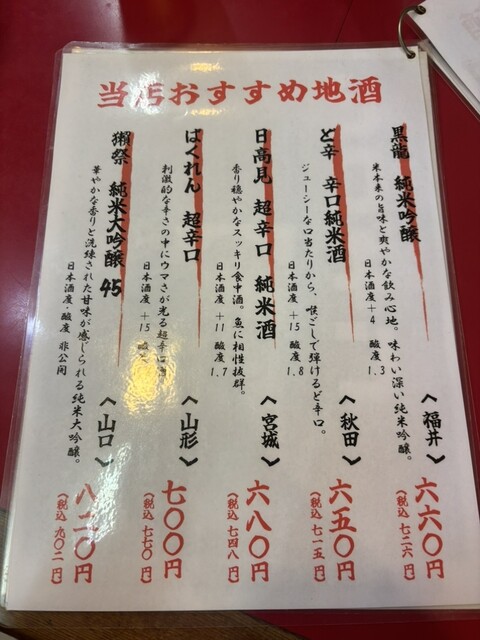 当店おすすめ地酒
黒龍 純米吟醸
米本来の旨味と爽やかな飲み心地。味わい深い純米吟醸。
日本酒度+4 酸度1.3
〈福井〉
六六〇円
(税込 七二六円)
ど辛 辛口純米酒
ジューシーな口当たりから、喉ごしで弾けるど辛口。
日本酒度+15 酸度1.8
〈秋田〉
六五〇円
(税込 七一五円)
日高見 超辛口 純米酒
香り穏やかなスッキリ食中酒。魚に相性抜群。
日本酒度+11 酸度1.7
〈宮城〉
六八〇円
(税込 七四八円)
ばくれん 超辛口
刺激的な辛さの中にウマさが光る超辛口
日本酒度+15
〈山形〉
七〇〇円
(税込 七七〇円)
獺祭 純米大吟醸 45
華やかな香りと洗練された甘味が感じられる純米大吟醸。
日本酒度・酸度 非公開
〈山口〉
八二〇円
(税込 九〇二円)